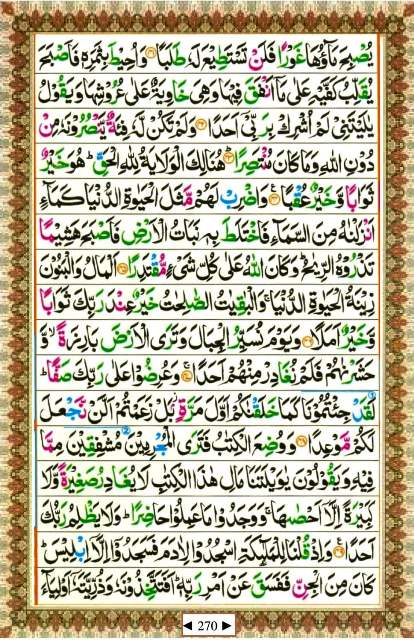 يُصْبِحَ مَآؤُهَا غَوْرًا فَلَنْ تَسْتَطِيْعَ لَهٗ طَلَبًا ﴿۴۱﴾ وَاُحِيْطَ بِثَمَرِهٖ فَاَصْبَحَ
يُقَلِّبُ كَفَّيْهِ عَلٰى مَآ اَنْفَقَ فِيْهَا وَهِىَ خَاوِيَةٌ عَلٰى عُرُوْشِهَا وَيَقُوْلُ
يٰلَيْتَنِىْ لَمْ اُشْرِكْ بِرَبِّىْٓ اَحَدًا ﴿۴۲﴾ وَلَمْ تَكُنْ لَّهٗ فِئَةٌ يَّنْصُرُوْنَهٗ مِنْ
دُوْنِ اللّٰهِ وَمَا كَانَ مُنْتَصِرًا ﴿۴۳﴾ هُنَالِكَ الْوَلَايَةُ لِلّٰهِ الْحَقِّ ؕ هُوَ خَيْرٌ
ثَوَابًا وَّخَيْرٌ عُقْبًا ﴿۴۴﴾ وَاضْرِبْ لَهُمْ مَّثَلَ الْحَيٰوةِ الدُّنْيَا كَمَآءٍ
اَنْزَلْنٰهُ مِنَ السَّمَآءِ فَاخْتَلَطَ بِهٖ نَبَاتُ الْاَرْضِ فَاَصْبَحَ هَشِيْمًا
تَذْرُوْهُ الرِّيٰحُ ؕ وَكَانَ اللّٰهُ عَلٰى كُلِّ شَىْءٍ مُّقْتَدِرًا ﴿۴۵﴾ اَلْمَالُ وَالْبَنُوْنَ
زِيْنَةُ الْحَيٰوةِ الدُّنْيَا ۚ وَالْبٰقِيٰتُ الصّٰلِحٰتُ خَيْرٌ عِنْدَ رَبِّكَ ثَوَابًا
وَّخَيْرٌ اَمَلًا ﴿۴۶﴾ وَيَوْمَ نُسَيِّرُ الْجِبَالَ وَتَرَى الْاَرْضَ بَارِزَةً ۙ وَّ
حَشَرْنٰهُمْ فَلَمْ نُغَادِرْ مِنْهُمْ اَحَدًا ﴿۴۷﴾ وَعُرِضُوْا عَلٰى رَبِّكَ صَفًّا ؕ
لَقَدْ جِئْتُمُوْنَا كَمَا خَلَقْنٰكُمْ اَوَّلَ مَرَّةٍۭ ۫ بَلْ زَعَمْتُمْ اَلَّنْ نَّجْعَلَ
لَكُمْ مَّوْعِدًا ﴿۴۸﴾ وَوُضِعَ الْكِتٰبُ فَتَرَى الْمُجْرِمِيْنَ مُشْفِقِيْنَ مِمَّا
فِيْهِ وَيَقُوْلُوْنَ يٰوَيْلَتَنَا مَالِ هٰذَا الْكِتٰبِ لَا يُغَادِرُ صَغِيْرَةً وَّلَا
كَبِيْرَةً اِلَّآ اَحْصٰهَا ۚ وَوَجَدُوْا مَا عَمِلُوْا حَاضِرًا ؕ وَلَا يَظْلِمُ رَبُّكَ
اَحَدًا ﴿۴۹﴾ وَاِذْ قُلْنَا لِلْمَلٰٓئِكَةِ اسْجُدُوْا لِاٰدَمَ فَسَجَدُوْٓا اِلَّآ اِبْلِيْسَ ؕ
كَانَ مِنَ الْجِنِّ فَفَسَقَ عَنْ اَمْرِ رَبِّهٖ ؕ اَفَتَتَّخِذُوْنَهٗ وَذُرِّيَّتَهٗٓ اَوْلِيَآءَ
◄ 270 ►